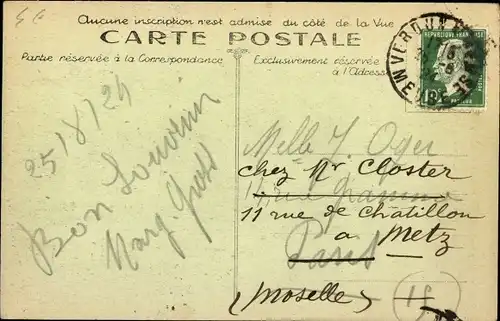 Aucune inscription n'est admise du côté de la Vue
CARTE POSTALE
Partie réservée à la Correspondance
Exclusivement réservée
à l'Adresse
VERDUN
MEUSE
REPUBLIQUE FRANÇAISE
15c
25/8/24
Bon Souvenir
Marg.
Melle J. Oger
chez Mr Closter
11 rue
11 rue de Chatillon
a Metz
Paris
(Moselle)